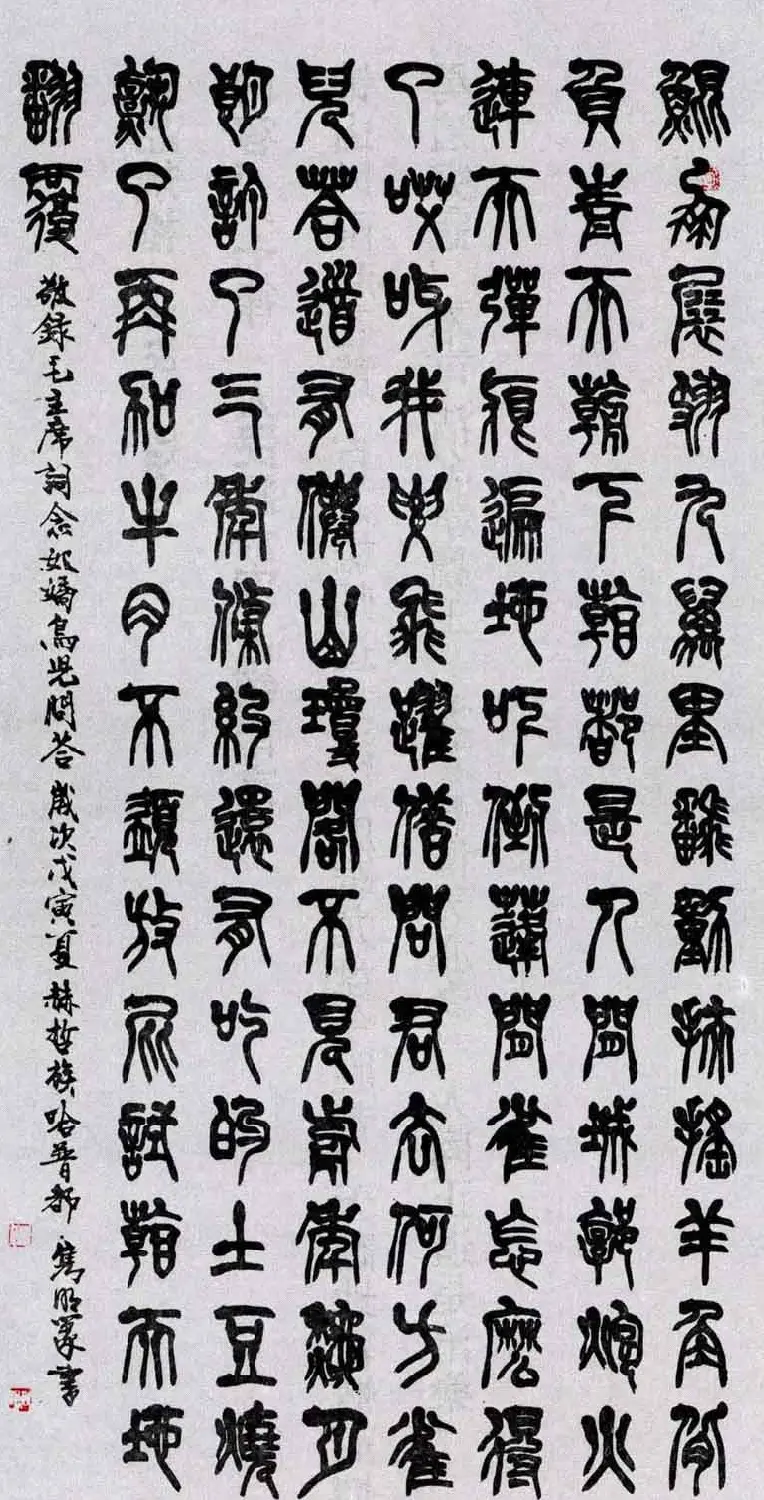 鯤鵬展翅九萬里翻動扶搖羊角背
負青天朝下看都是人間城郭炮火
連天彈痕遍地吓倒蓬間雀怎麼得
了哎呀我要飛躍借問君去何方雀
兒荅道有僊山瓊閣不見前年秋月
朗訂了三家條約還有吃的土豆燒
熟了再加牛肉不須放屁試看天地
翻覆
敬録毛主席詞念奴嬌鳥児問荅 歲次戊寅夏赫哲族哈普都雋明篆書